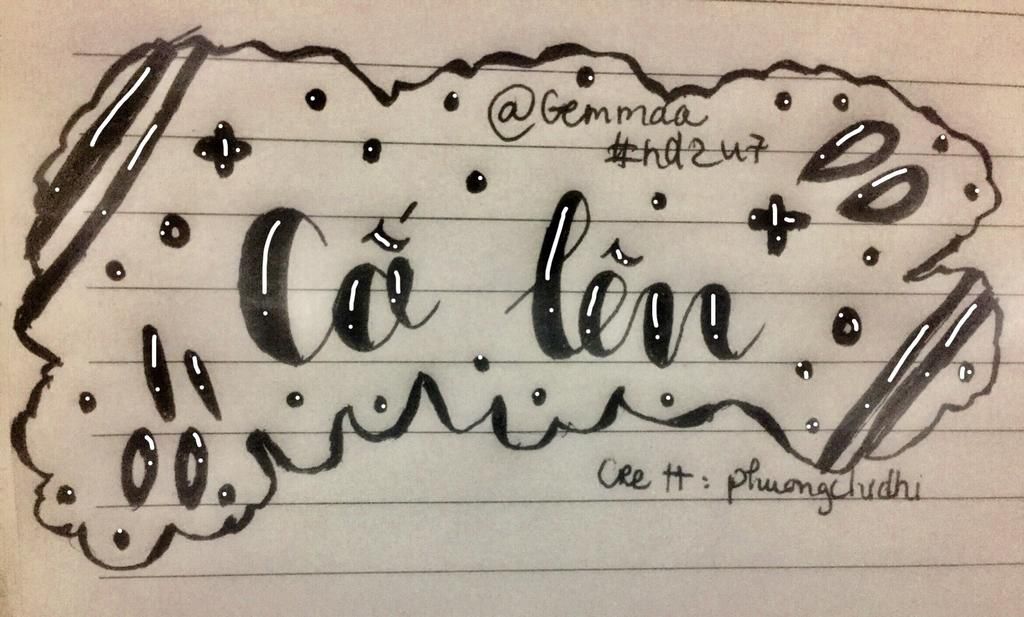 @Gemmaa
#nd2u7
Cố lên
Cre tt: phuongchidhi